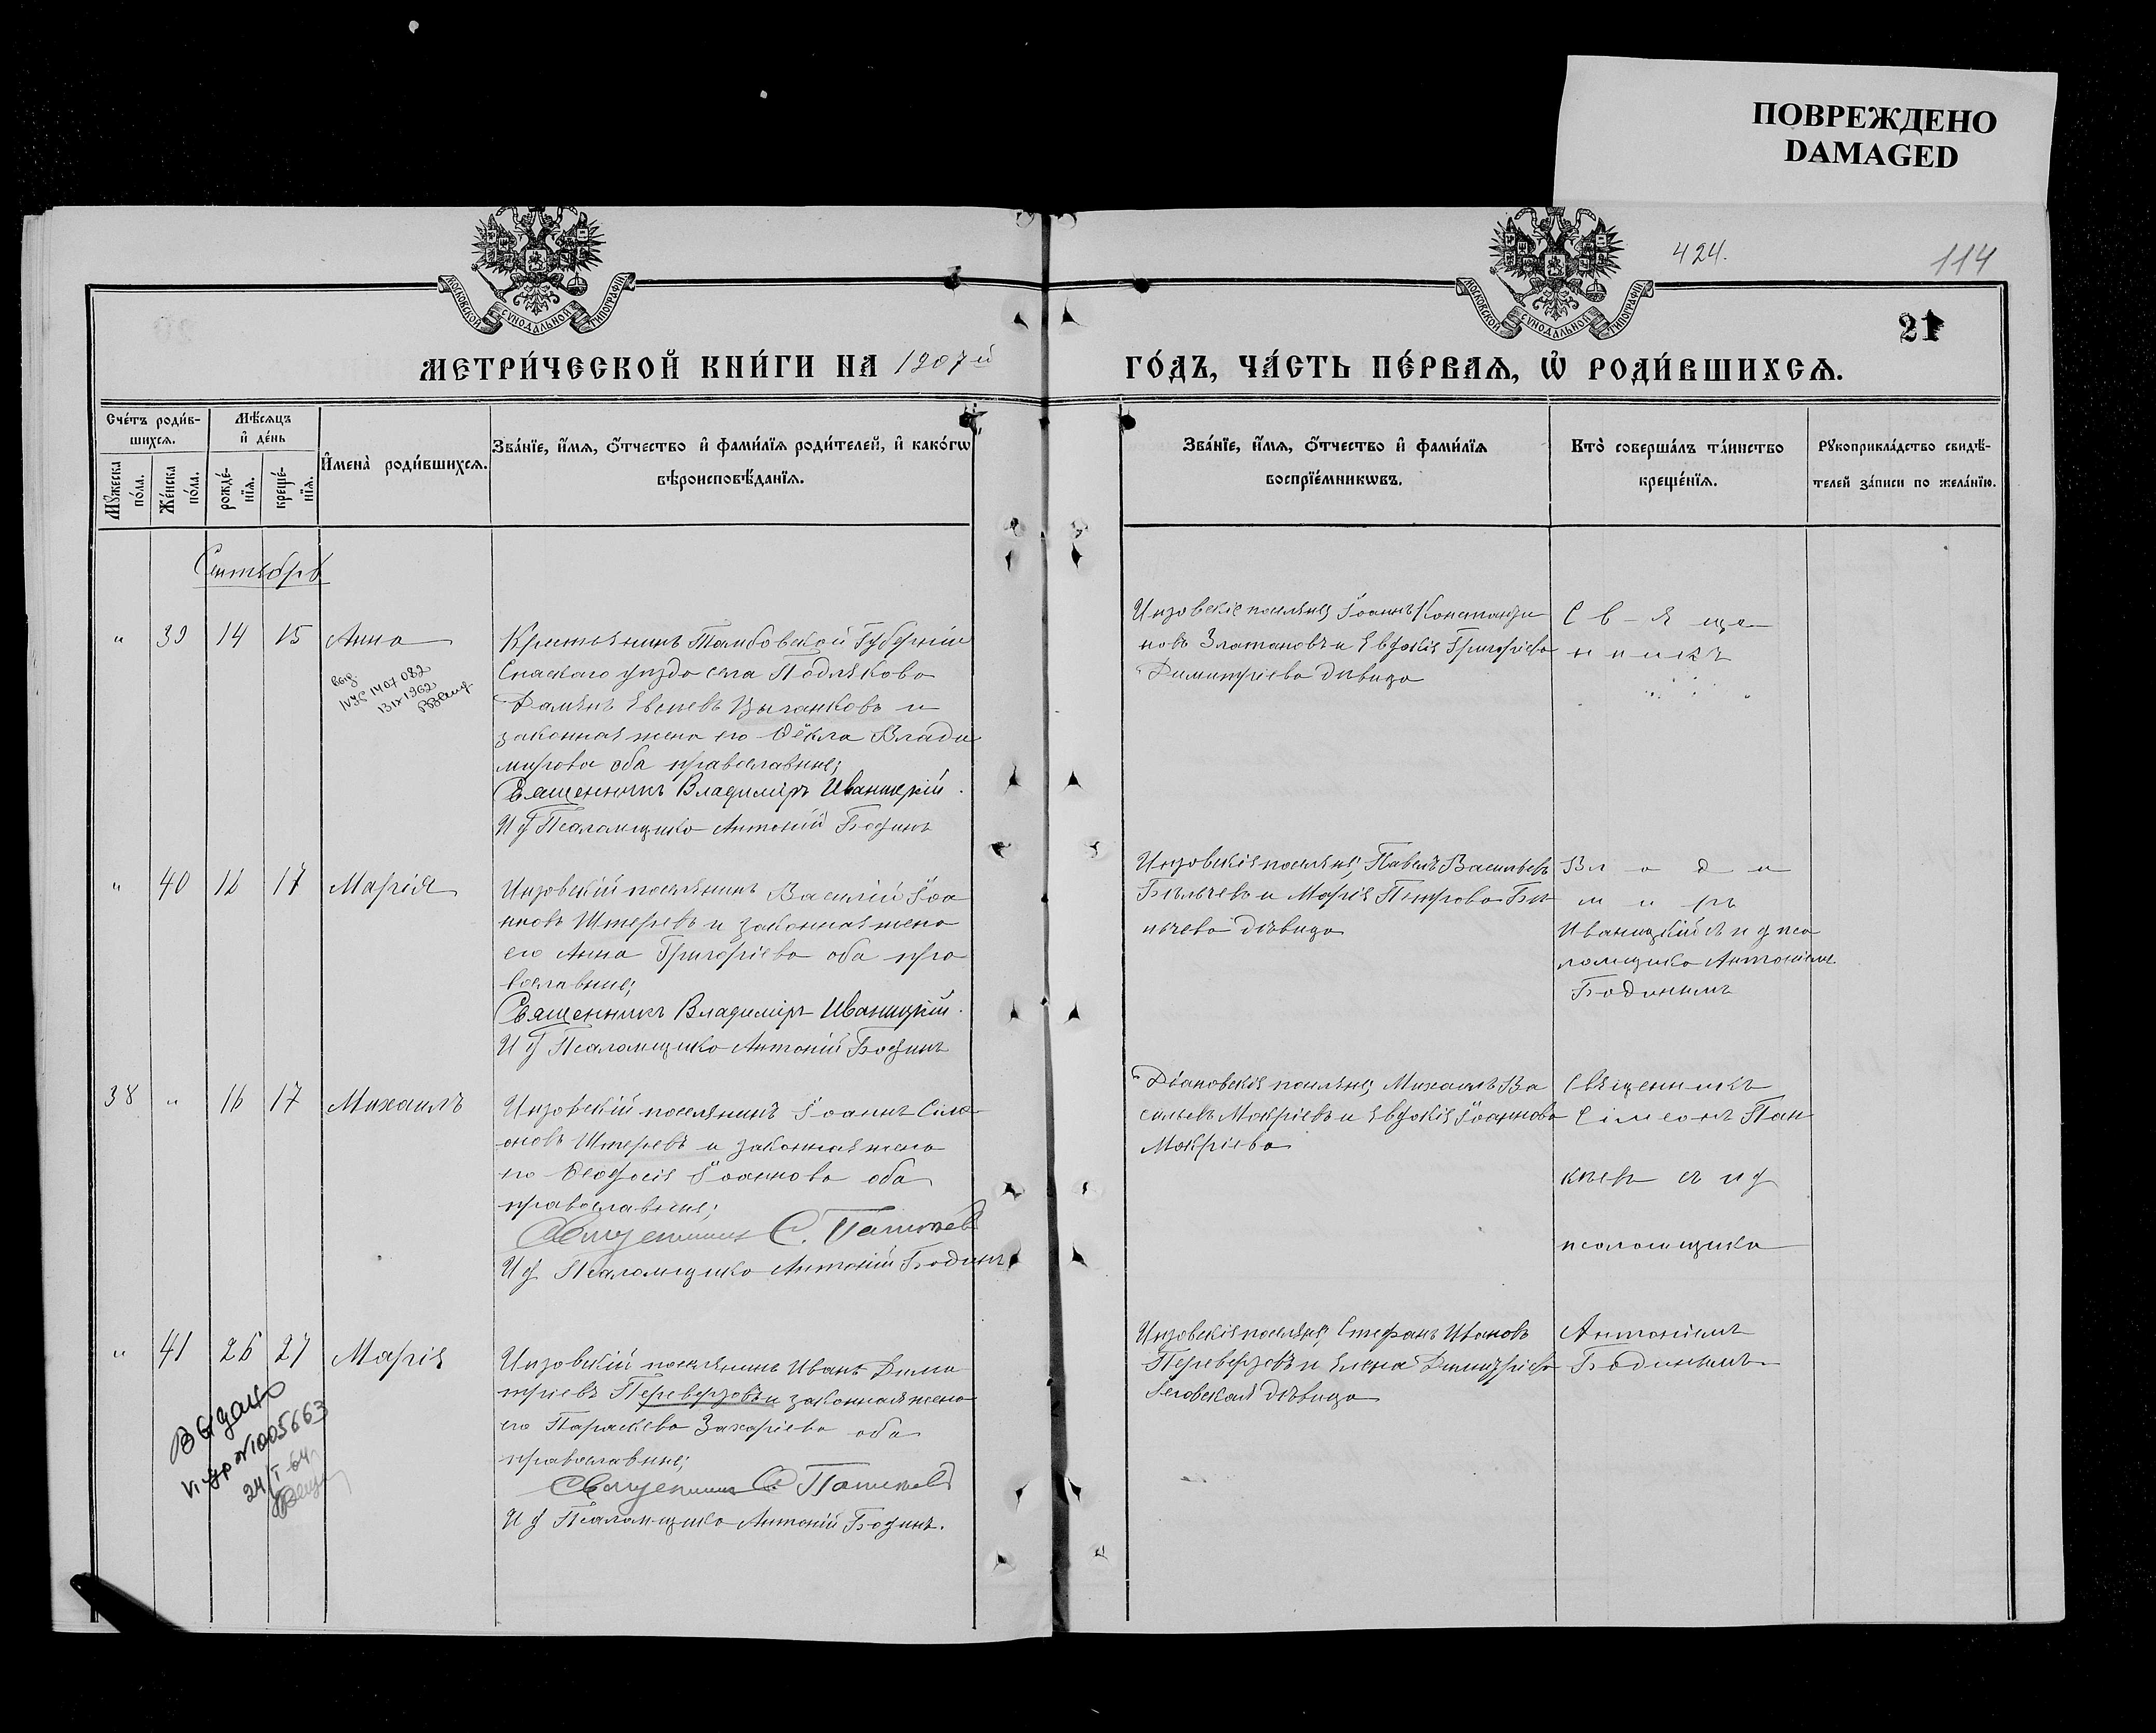 ПОВРЕЖДЕНО
DAMAGED
424.
114
21
МОСКОВСКОЙ СѴНОДАЛЬНОЙ ТИПОГРАФІИ
МОСКОВСКОЙ СѴНОДАЛЬНОЙ ТИПОГРАФІИ
МЕТРИ́ЧЕСКОЙ КНИ́ГИ НА 1907й
ГО́ДЪ, ЧА́СТЬ ПЕ́РВАѦ, Ѡ҆ РОДИ́ВШИХСѦ.
Сче́тъ роди́в-
шихсѧ.
Мꙋжеска по́ла.
Же́нска по́ла.
Мѣ́сѧцъ
и҆ де́нь
рожде́-
нїѧ.
креще́-
нїѧ.
И҆мена̀ роди́вшихсѧ.
Зва́нїе, и҆́мѧ, ѻ҆́тчество и҆ фами́лїѧ роди́телей, и҆ како́гѡ
вѣроисповѣ́данїѧ.
Зва́нїе, и҆́мѧ, ѻ҆́тчество и҆ фами́лїѧ
воспрїе́мникѡвъ.
Кто̀ соверша́лъ та́инство
креще́нїѧ.
Рꙋкоприкла́дство свидѣ́-
телей за́писи по жела́нїю.
Сентябрь
" 39 14 15 Анна
Крестьянинъ Тамбовской Губерніи
Спаскаго уѣзда села Подлѣсково
Дамянъ Цыганковъ и
законная жена его Ѳёкла Влади
мирова оба православные;
Священникъ Владиміръ Иваницкій.
И д Псаломщика Антоній Бодинъ
1407082
1962
Инзовскіе поселяне, Іоаннъ Константи
новъ Златановъ и Евдокія Григоріева
Димитріева дѣвица
С в я ще
н н и к ъ
" 40 16 17 Марія
Инзовскій поселянинъ Василій Іоа
нновъ Штеревъ и законная жена
его Анна Григоріева оба пра
вославные;
Священникъ Владиміръ Иваницкій.
И д Псаломщика Антоній Бодинъ
Инзовскія поселяне, Павелъ Васильевъ
Бѣлчевъ и Марія Петрова Бѣ
лчева дѣвица
Вл а д и
м и ръ
Иваницкій съ и д пса
ломщика Антоніемъ
Бодинымъ
38 " 16 17 Михаилъ
Инзовскій поселянинъ Іоаннъ Симе
оновъ Штеревъ и законная жена
его Ѳеодосія Іоаннова оба
православные;
Священникъ С. Панкѣевъ
И д Псаломщика Антоній Бодинъ
Діановскія поселяне, Михаилъ Ва
сильевъ Мокріевъ и Евдокія Іоаннова
Мокріева
Священникъ
Сімеонъ Пан
кѣевъ съ и д
псаломщика
" 41 26 27 Марія
Инзовскій поселянинъ Иванъ Дими
тріевъ Переверзовъ и законная жена
его Параскева Захаріева оба
православные;
Священникъ С. Панкѣевъ
И д Псаломщика Антоній Бодинъ.
Инзовскія поселяне, Стефанъ Ивановъ
Переверзовъ и Елена Димитріева
дѣвица
Антоніемъ
Бодинымъ
Выдано
№1005663
24/I-64